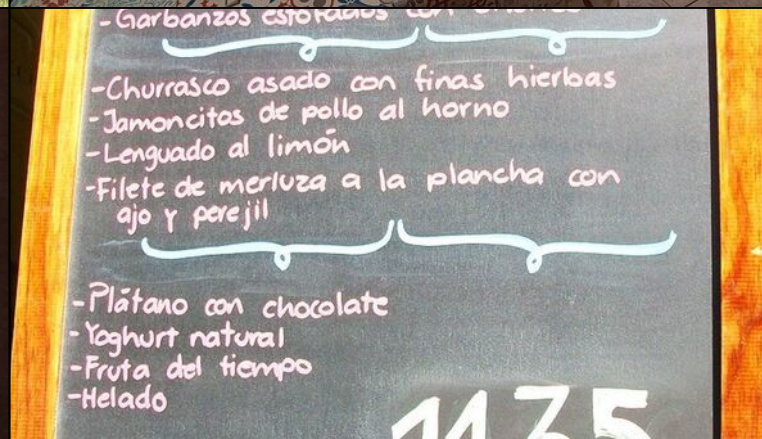 - Garbanzos estofados con
-Churrasco asado con finas hierbas
-Jamoncitos de pollo al horno
-Lenguado al limón
-Filete de merluza a la plancha con
ajo y perejil
-Plátano con chocolate
-Yoghurt natural
-Fruta del tiempo
-Helado